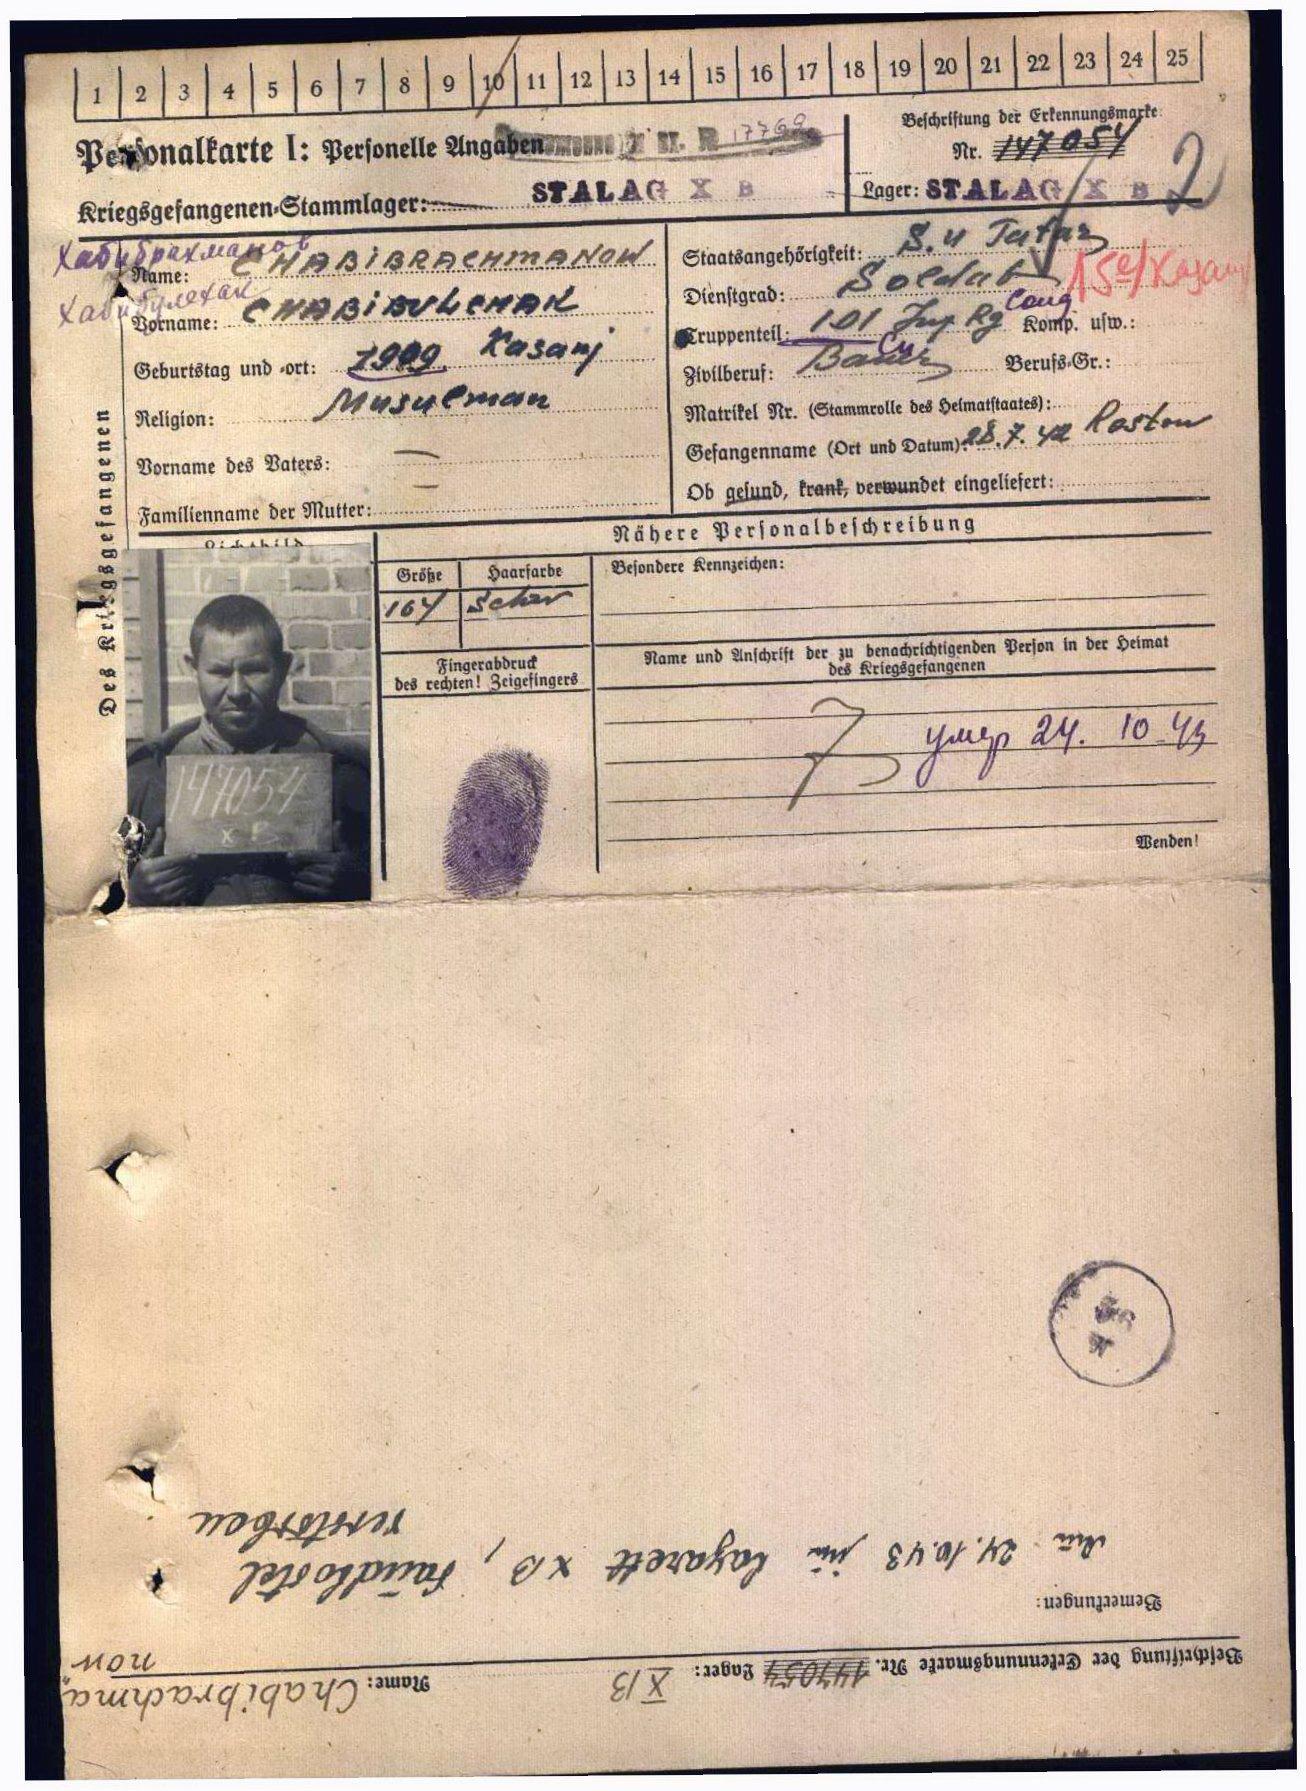 1 2 3 4 5 6 7 8 9 10 11 12 13 14 15 16 17 18 19 20 21 22 23 24 25
Personalkarte I: Personelle Angaben
17769
Kriegsgefangenen-Stammlager: STALAG X B
Beschriftung der Erkennungsmarke
Nr. 147054
Lager: STALAG X B
2
Хабибрахманов
Name: CHABIBRACHMANOW
Хабибулехак
Vorname: CHABIBULCHAK
Geburtstag und -ort: 1909 Kasanj
Religion: Musulman
Vorname des Vaters: —
Familienname der Mutter: —
Staatsangehörigkeit: S.u Tatar
Dienstgrad: Soldat
Truppenteil: 101 Inf Rg Komp. usw.:
Zivilberuf: Bauer Berufs-Gr.:
Matrikel Nr. (Stammrolle des Heimatstaates):
Gefangennahme (Ort und Datum): 28.7.42 Rostow
Ob gesund, krank, verwundet eingeliefert:
Des Kriegsgefangenen
Lichtbild
Nähere Personalbeschreibung
Größe Haarfarbe Besondere Kennzeichen:
164 Schw
Fingerabdruck
des rechten! Zeigefingers
Name und Anschrift der zu benachrichtigenden Person in der Heimat
des Kriegsgefangenen
умер 24. 10 43
Wenden!
147054
X B
Name: Chabibrachma„
now
Beschriftung der Erkennungsmarke Nr. 147054 Lager: X B
Bemerkungen:
24.10.43 im Lazarett XB, Sandbostel
verstorben